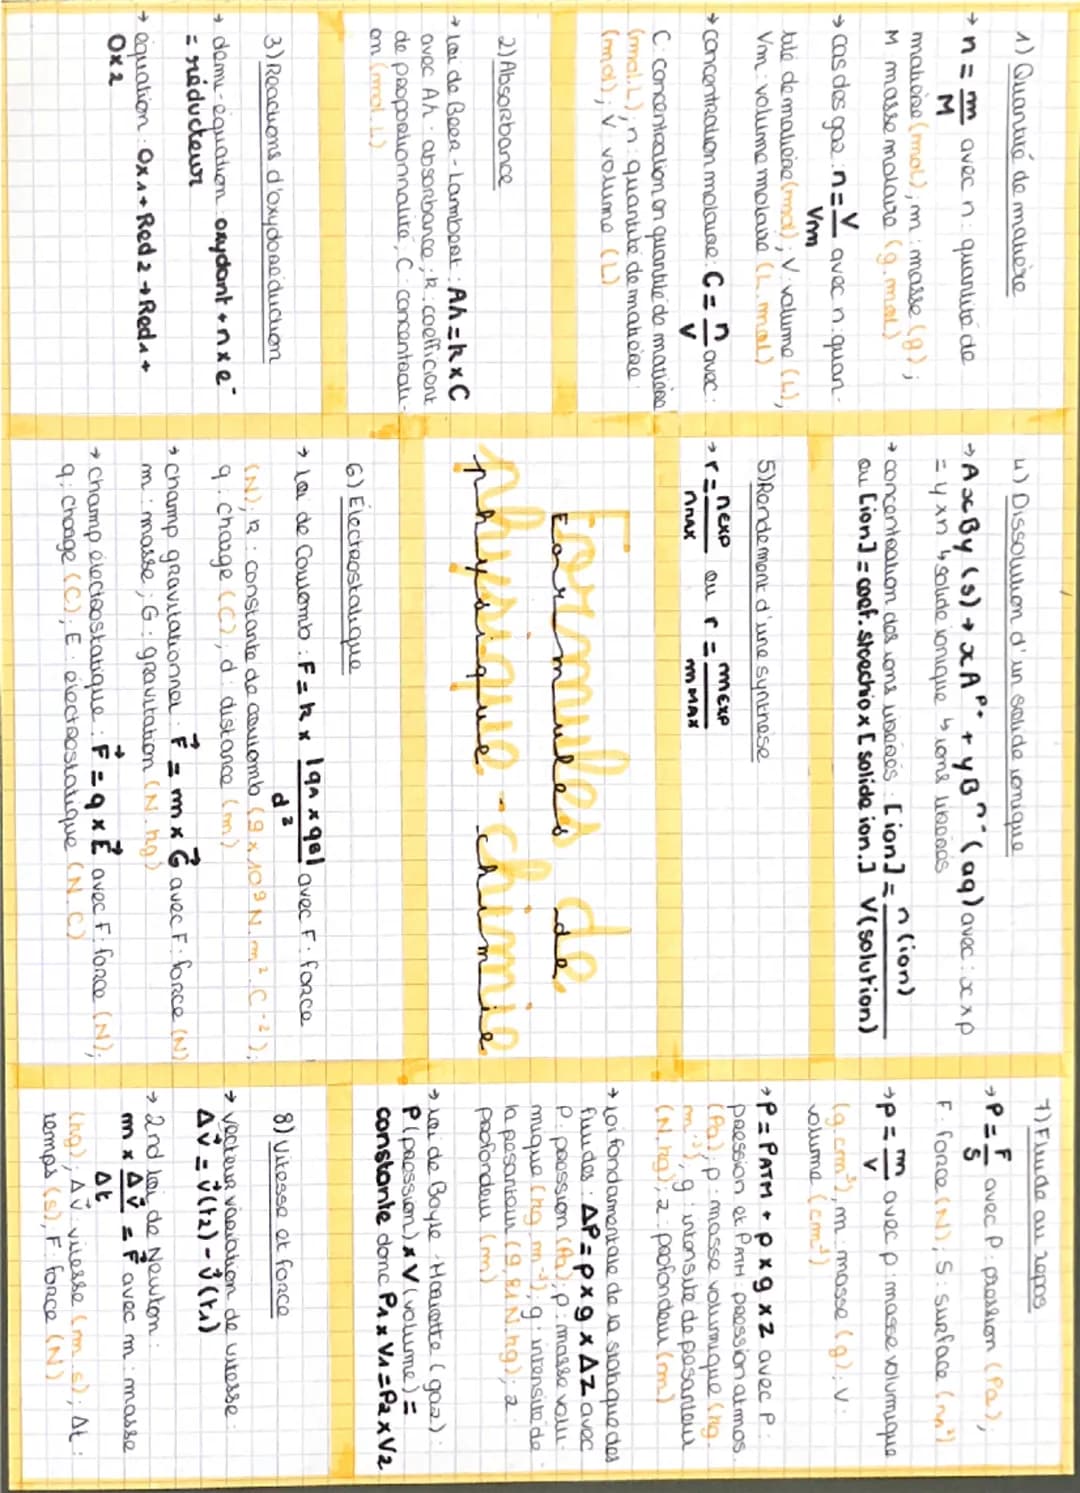 1) Quantité de matière
→ n = m/M avec n : quantité de
matière (mol) ; m : masse (g) ;
M masse molaire (g.mol)
→ cas des gaz : n = V/Vm avec n : quan-
tité de matière (mol) ; V : volume (L) ;
Vm : volume molaire (L.mol)
→ concentration molaire : C = n/V avec :
C : concentration en quantité de matière
(mol.L) ; n : quantité de matière
(mol) ; V volume (L)
2) Absorbance
→ Loi de Beer-Lambert : Ah = k x C
avec Ah : absorbance ; k : coefficient
de proportionnalité ; C : concentrati-
on (mol.L)
3) Réactions d'oxydoréduction
→ demi-équation : oxydant + n x e⁻
= réducteur
→ équation : Ox1 + Red2 → Red1 +
Ox2
4) Dissolution d'un solide ionique
→ AxBy (s) → xA^p+ + yB^n- (aq) avec : x x p
= y x n ↳ solide ionique ↳ ions libérés
→ concentration des ions libérés : [ion] = n(ion)/V(solution)
ou [ion] = coef. stoechio x [solide ion.]
5) Rendement d'une synthèse
→ r = nexp/nmax ou r = mexp/mmax
Formules de
physique - chimie
6) Électrostatique
→ Loi de Coulomb : F = k x |qA x qB|/d² avec F : force
(N) ; k : constante de coulomb (9 x 10⁹ N.m².C⁻²) ;
q : charge (C) ; d : distance (m)
→ champ gravitationnel : F⃗ = m x G⃗ avec F : force (N)
m : masse ; G : gravitation (N.kg)
→ champ électrostatique : F⃗ = q x E⃗ avec F : force (N) ;
q : charge (C) ; E : électrostatique (N.C)
7) Fluide au repos
→ P = F/S avec P : pression (Pa) ;
F : force (N) ; S : surface (m²)
→ ρ = m/V avec ρ : masse volumique
(g.cm³), m : masse (g) ; V :
volume (cm³)
→ P = PATM + ρ x g x z avec P :
pression et PATM pression atmos.
(Pa) ; ρ : masse volumique (kg.
m⁻³) ; g : intensité de pesanteur
(N.kg) ; z : profondeur (m)
→ Loi fondamentale de la statique des
fluides : ΔP = ρ x g x Δz avec
P : pression (Pa) ; ρ : masse volu-
mique (kg.m⁻³) ; g : intensité de
la pesanteur (9,81 N.kg) ; z :
profondeur (m)
→ Loi de Boyle-Mariotte (gaz) :
P (pression) x V (volume) =
constante donc P1 x V1 = P2 x V2
8) Vitesse et force
→ vecteur variation de vitesse :
Δv⃗ = v⃗(t2) - v⃗(t1)
→ 2nd loi de Newton :
m x Δv⃗/Δt = F⃗ avec m : masse
(kg) ; Δv⃗ : vitesse (m.s) ; Δt :
temps (s) ; F : force (N)